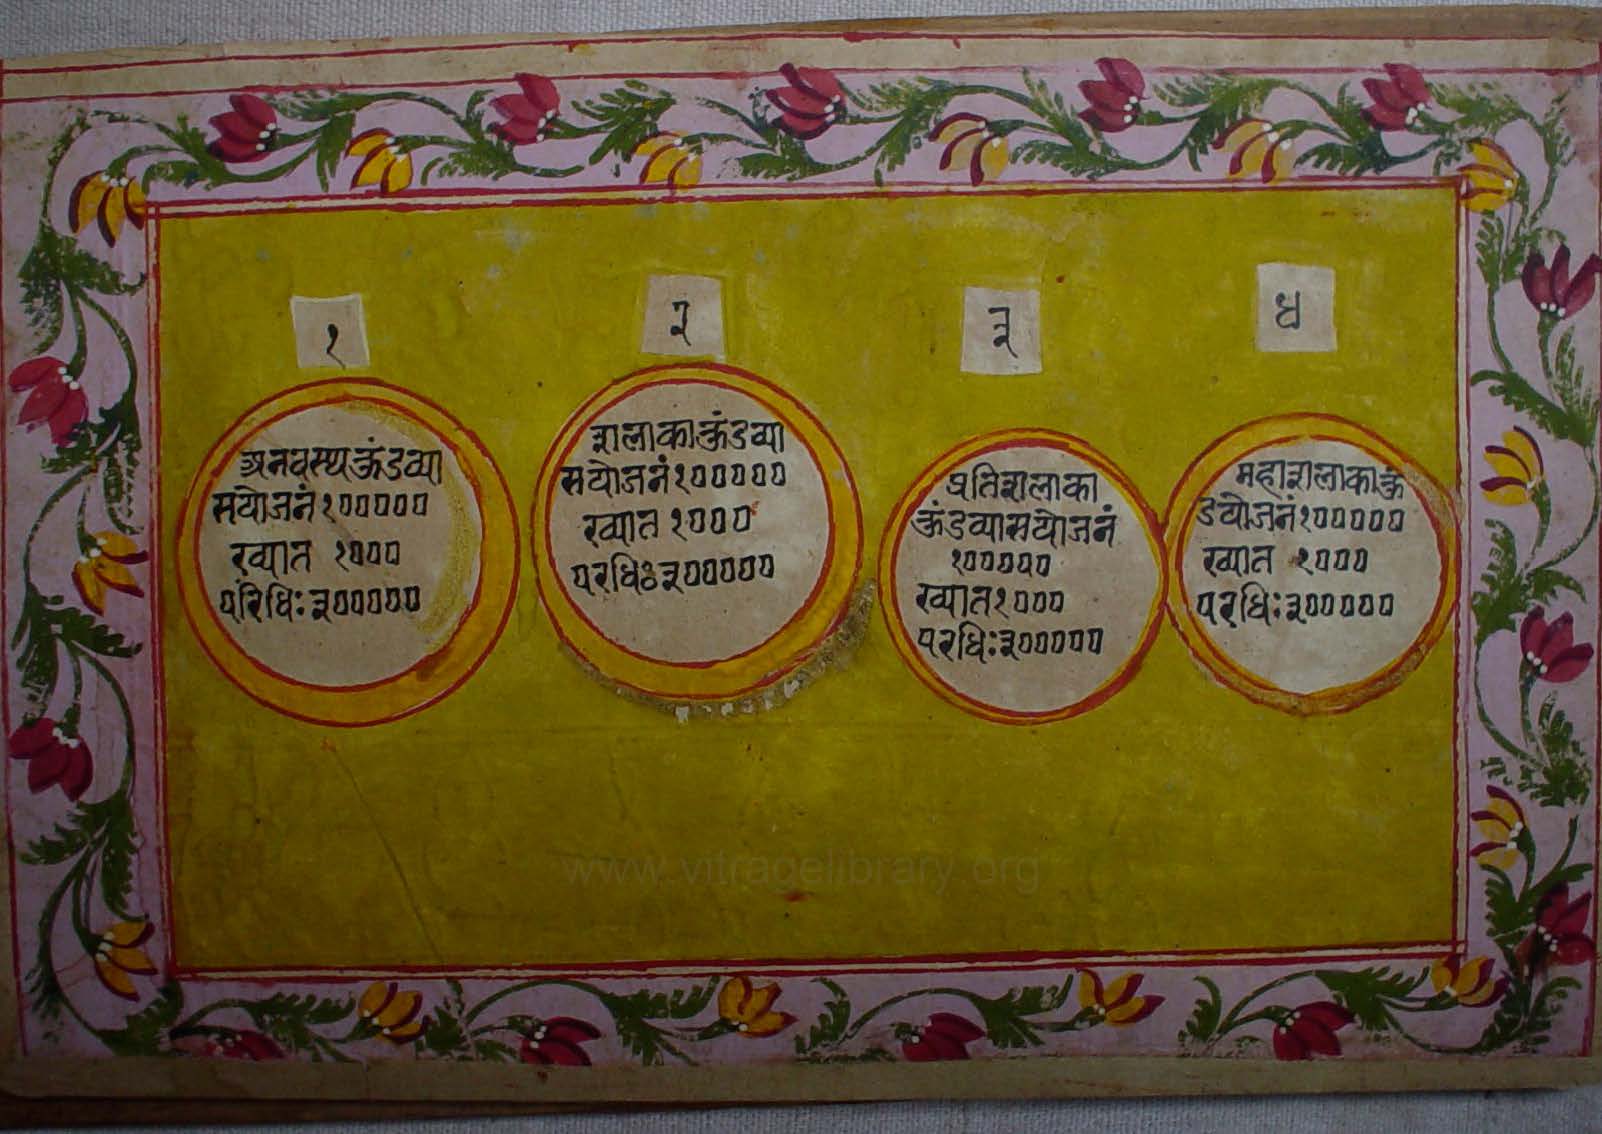 १
अनवस्थकुंडव्या
सयोजनं१०००००
ख्यात १०००
परिधिः३०००००
२
शलाकाकुंडव्या
सयोजनं१०००००
ख्यात १०००
परधिः३०००००
३
प्रतिशलाका
कुंडव्यासयोजनं
१०००००
ख्यात१०००
परधिः३०००००
४
महाशलाकाकुं
डयोजनं१०००००
ख्यात १०००
परधिः३०००००
www.vitragelibrary.org